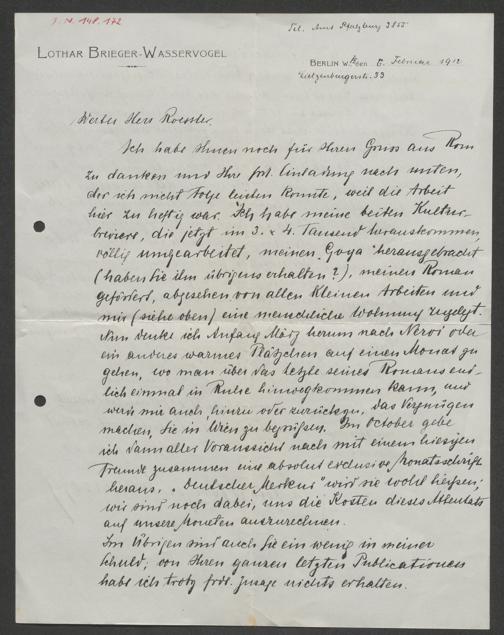 J. N. 148.172
Tel. Amt Pfalzburg 3855
LOTHAR BRIEGER-WASSERVOGEL
BERLIN W. DEN 6. Februar 1912
Lietzenburgerstr. 33
Werter Herr Roessler.
Ich habe Ihnen noch für Ihren Gruss aus Rom
zu danken und Ihre frdl. Einladung nach unten,
der ich nicht Folge leisten konnte, weil die Arbeit
hier zu heftig war. Ich habe meine beiden Kultur-
breviere, die jetzt im 3. & 4. Tausend herauskommen,
völlig umgearbeitet, meinen „Goya" herausgebracht
(haben Sie ihn übrigens erhalten?), meinen Roman
gefördert, abgesehen von allen kleinen Arbeiten und
mir (siehe oben) eine menschliche Wohnung zugelegt.
Nun denke ich Anfang März herum nach Nervi oder
ein anderes warmes Plätzchen auf einen Monat zu
gehen, wo man über das letzte seines Romans end-
lich einmal in Ruhe hinwegkommen kann, und
werde mir auch, hinzu oder zurückzu, das Vergnügen
machen, Sie in Wien zu begrüssen. Im October gebe
ich dann aller Voraussicht nach mit einem hiesigen
Freunde zusammen eine absolut exclusive Monatsschrift
heraus. „Deutscher Merkur" wird sie wohl heissen;
wir sind noch dabei, uns die Kosten dieses Attentats
auf unsere Moneten auszurechnen.
Im Übrigen sind auch Sie ein wenig in meiner
Schuld; von Ihren ganzen letzten Publicationen
habe ich trotz frdl. Zusage nichts erhalten.